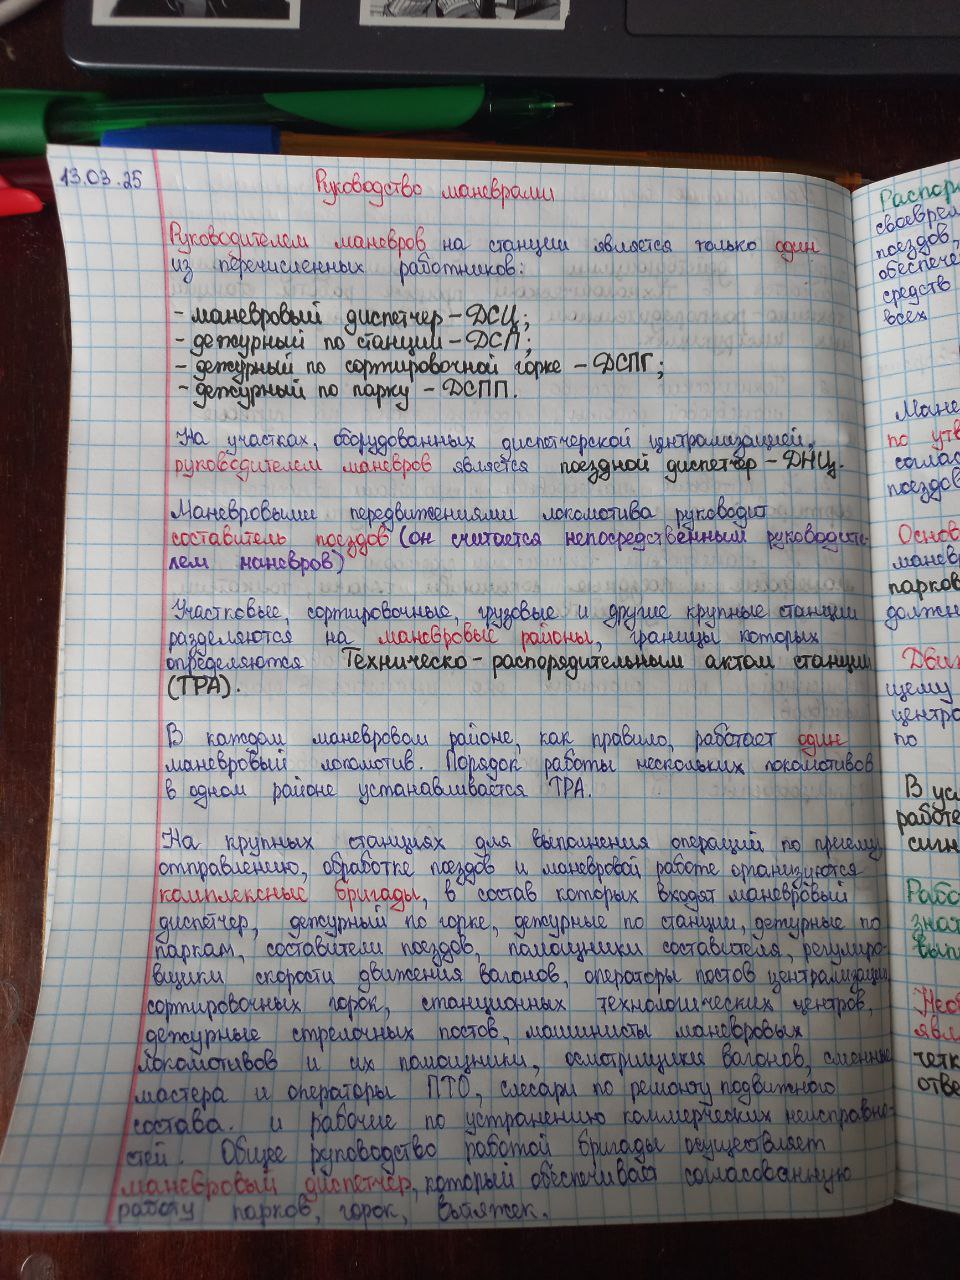 13.03.25
Руководство маневрами
Руководителем маневров на станции является только один
из перечисленных работников:
- маневровый диспетчер - ДСЦ;
- дежурный по станции - ДСП;
- дежурный по сортировочной горке - ДСПГ;
- дежурный по парку - ДСПП.
На участках, оборудованных диспетчерской централизацией,
руководителем маневров является поездной диспетчер - ДНЦ.
Маневровыми передвижениями локомотива руководит
составитель поездов (он считается непосредственным руководите-
лем маневров)
Участковые, сортировочные, грузовые и другие крупные станции
разделяются на маневровые районы, границы которых
определяются Техническо-распорядительным актом станции
(ТРА).
В каждом маневровом районе, как правило, работает один
маневровый локомотив. Порядок работы нескольких локомотивов
в одном районе устанавливается ТРА.
На крупных станциях для выполнения операций по приему,
отправлению, обработке поездов и маневровой работе организуются
комплексные бригады, в состав которых входят маневровый
диспетчер, дежурный по горке, дежурные по станции, дежурные по
паркам, составители поездов, помощники составителя, регулиро-
вщики скорости движения вагонов, операторы постов централизации,
сортировочных горок, станционных технологических центров,
дежурные стрелочных постов, машинисты маневровых
локомотивов и их помощники, осмотрщики вагонов, сменные
мастера и операторы ПТО, слесари по ремонту подвижного
состава. и рабочие по устранению коммерческих неисправно-
стей. Общее руководство работой бригады осуществляет
маневровый диспетчер, который обеспечивает согласованную
работу парков, горок, вытяжек.
своеврем
поездов,
обеспече
средств
всех
Мане
по утв
соглас
поездов
Основ
маневр
парков
должен
Движ
щему
центра
по
В ус
работе
сигн
Рабо
знат
выпо
Необ
явл
четк
отве